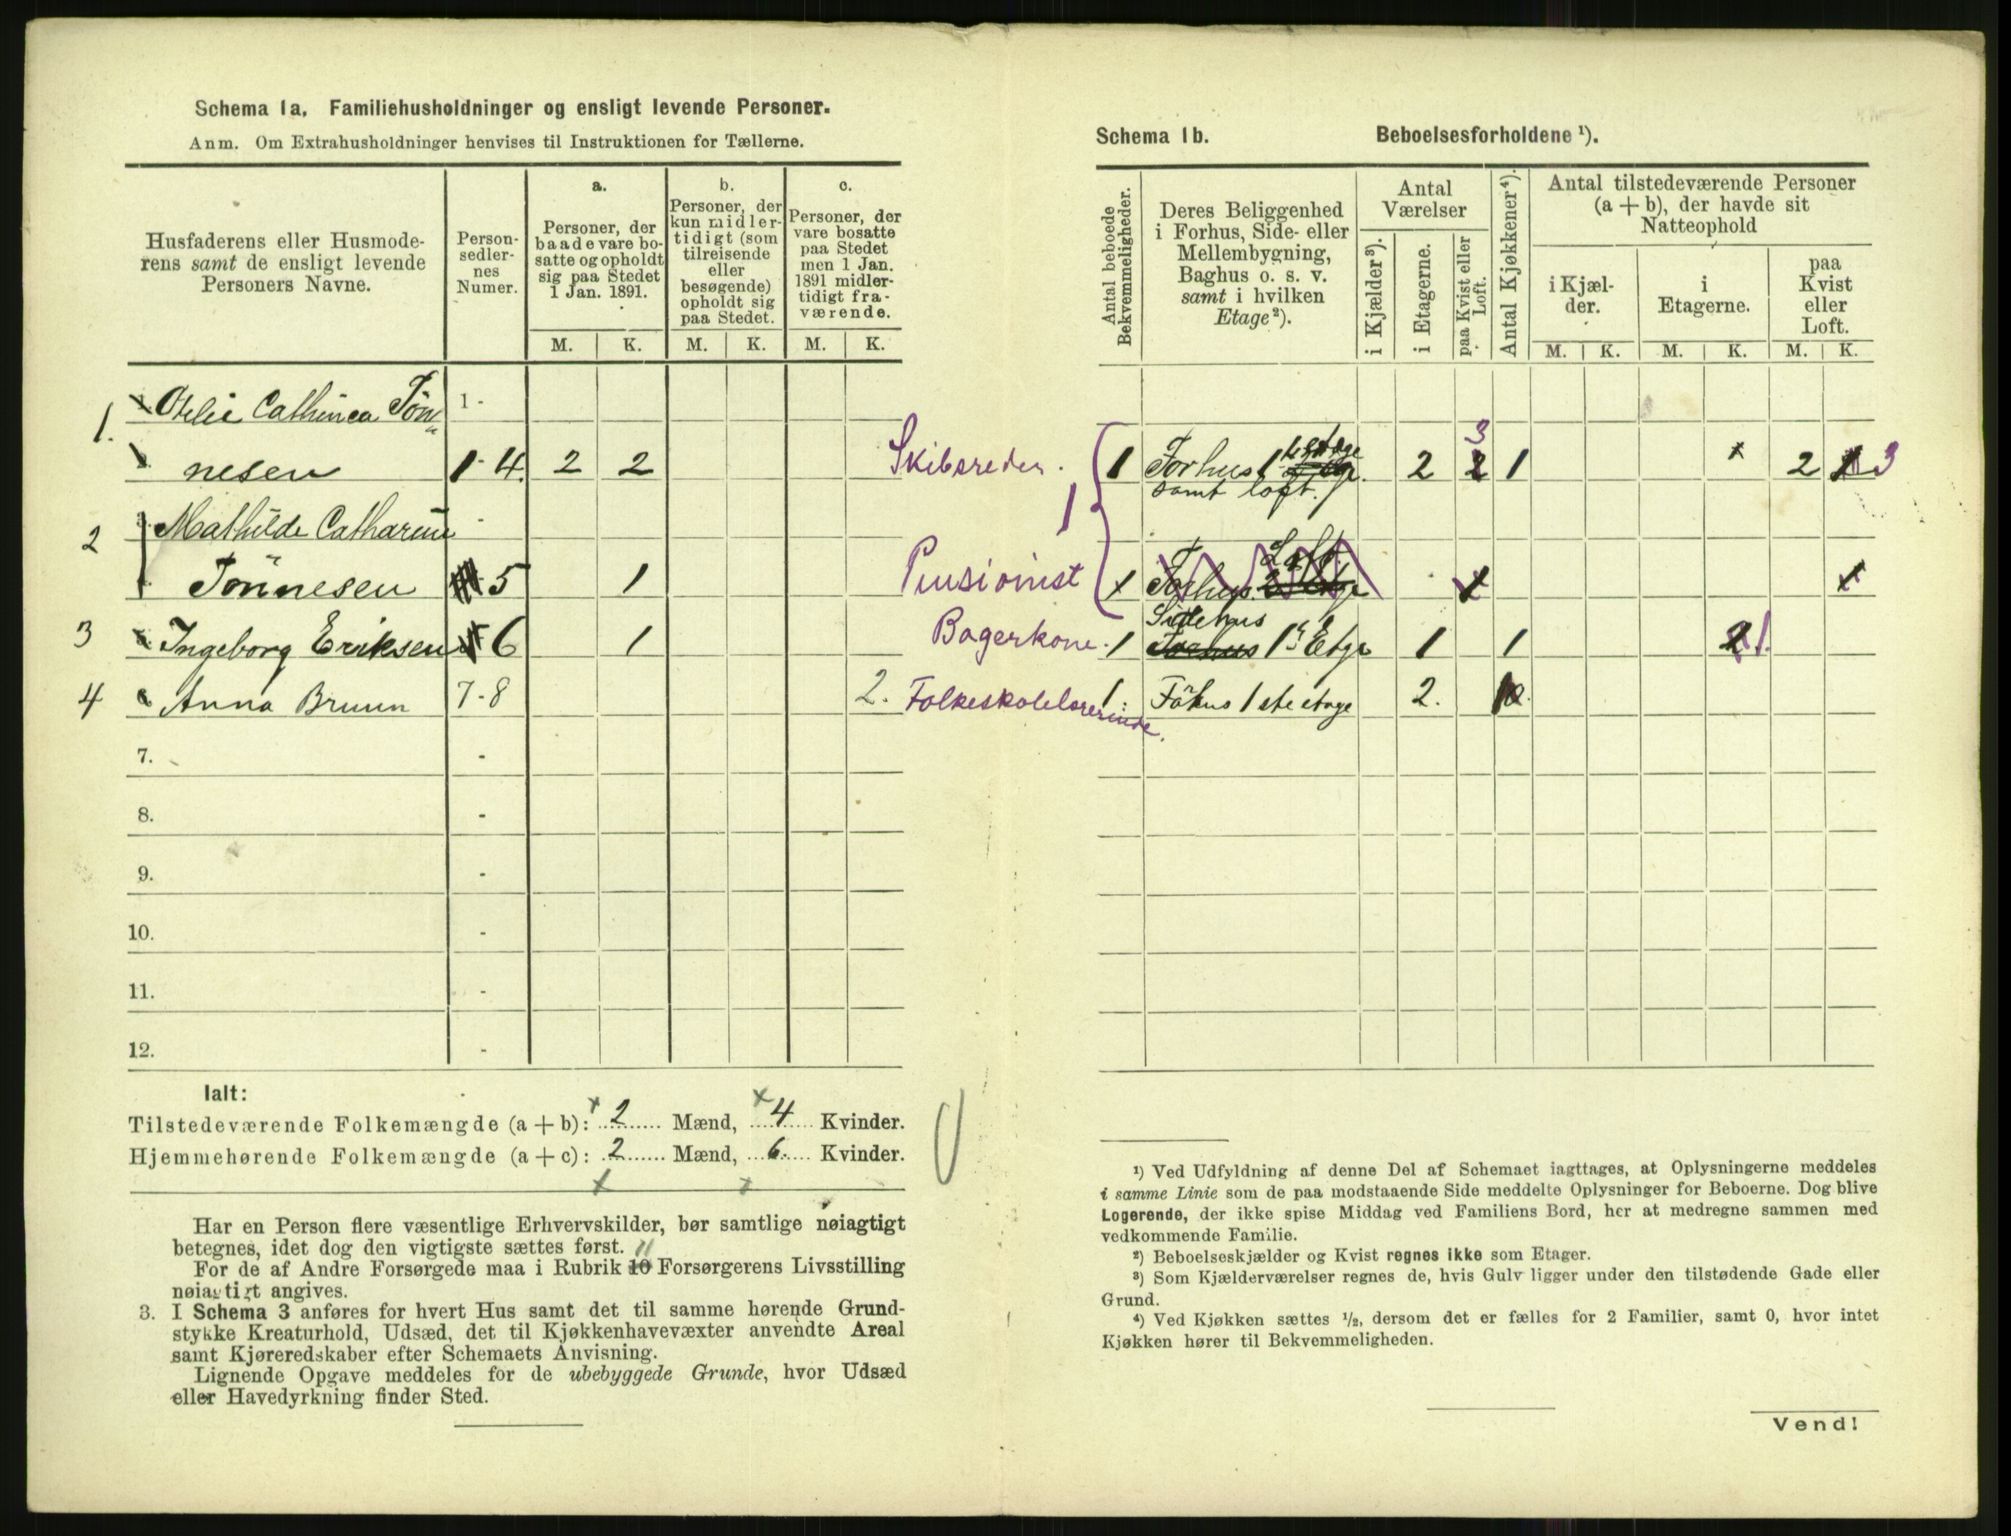 Schema 1a. Familiehusholdninger og ensligt levende Personer.
Anm. Om Extrahusholdninger henvises til Instruktionen for Tællerne.
Husfaderens eller Husmode-
rens samt de ensligt levende
Personers Navne.
Person-
sedler-
nes
Numer.
a.
Personer, der
baade vare bo-
satte og opholdt
sig paa Stedet
1 Jan. 1891.
b.
Personer, der
kun midler-
tidigt (som
tilreisende
eller
besøgende)
opholdt sig
paa Stedet.
c.
Personer, der
vare bosatte
paa Stedet
men 1 Jan.
1891 midler-
tidigt fra-
værende.
M. K. M. K. M. K.
1. Otelie Cathinca Tön- 1 -
nesen 1 - 4. 2 2
2 Mathilde Catharine -
Tönnesen 5 1
3 Ingeborg Eriksen 6 1
4 Anna Bruun 7-8 2.
7. -
8. -
9. -
10. -
11. -
12. -
Ialt:
Tilstedeværende Folkemængde (a + b): 2 Mænd, 4 Kvinder.
Hjemmehørende Folkemængde (a + c): 2 Mænd, 6 Kvinder.
Har en Person flere væsentlige Erhvervskilder, bør samtlige nøiagtigt
betegnes, idet dog den vigtigste sættes først. 11
For de af Andre Forsørgede maa i Rubrik 10 Forsørgerens Livsstilling
nøiagtigt angives.
3. I Schema 3 anføres for hvert Hus samt det til samme hørende Grund-
stykke Kreaturhold, Udsæd, det til Kjøkkenhavevæxter anvendte Areal
samt Kjøreredskaber efter Schemaets Anvisning.
Lignende Opgave meddeles for de ubebyggede Grunde, hvor Udsæd
eller Havedyrkning finder Sted.
Schema 1b. Beboelsesforholdene ¹).
Antal beboede
Bekvemmeligheder.
Deres Beliggenhed
i Forhus, Side- eller
Mellembygning,
Baghus o. s. v.
samt i hvilken
Etage²).
Antal
Værelser
i Kjælder ³).
i Etagerne.
paa Kvist eller
Loft.
Antal Kjøkkener⁴).
Antal tilstedeværende Personer
(a + b), der havde sit
Natteophold
i Kjæl-
der.
i
Etagerne.
paa
Kvist
eller
Loft.
M. K. M. K. M. K.
3
Skibsreder. 1 Forhus 1 2 2 1 x 2 3
samt loft.
1
Pensionist x Forhus Loft x x
Sidehus
Bagerkone. 1 Forhus 1 Etge 1 1 2 1.
Folkeskolelærerinde. 1. Föhus 1ste etage 2.
¹) Ved Udfyldning af denne Del af Schemaet iagttages, at Oplysningerne meddeles
i samme Linie som de paa modstaaende Side meddelte Oplysninger for Beboerne. Dog blive
Logerende, der ikke spise Middag ved Familiens Bord, her at medregne sammen med
vedkommende Familie.
²) Beboelseskjælder og Kvist regnes ikke som Etager.
³) Som Kjælderværelser regnes de, hvis Gulv ligger under den tilstødende Gade eller
Grund.
⁴) Ved Kjøkken sættes ½, dersom det er fælles for 2 Familier, samt 0, hvor intet
Kjøkken hører til Bekvemmeligheden.
Vend!